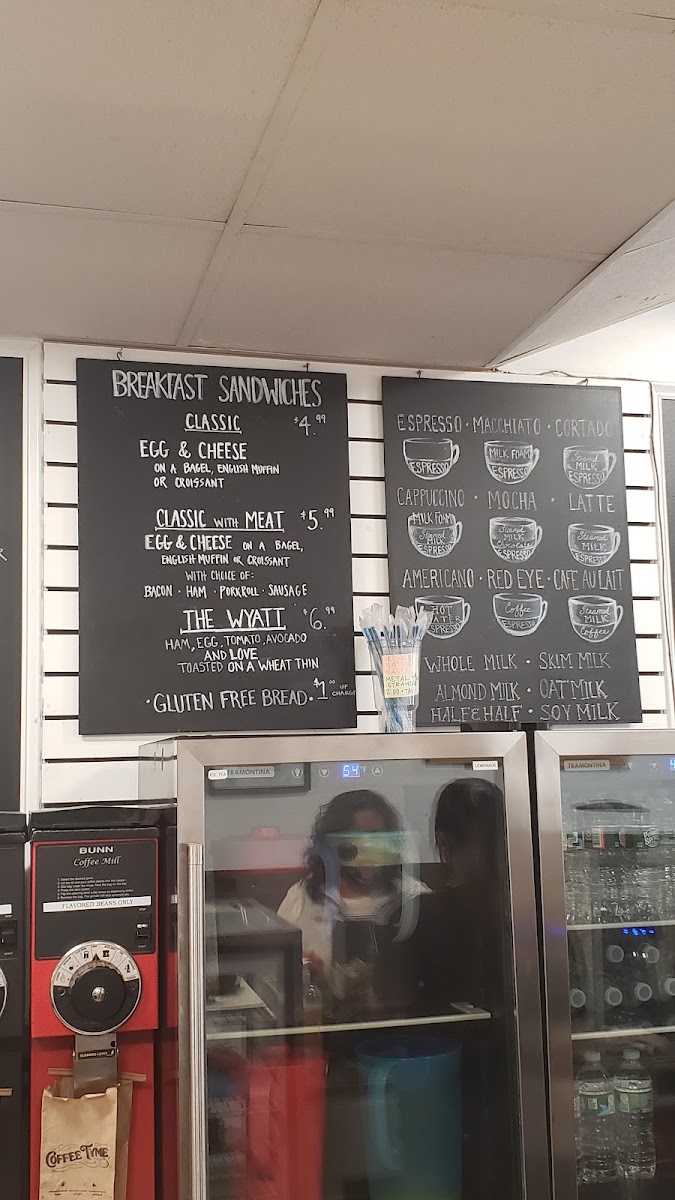 BREAKFAST SANDWICHES
CLASSIC $4.99
EGG & CHEESE
ON A BAGEL, ENGLISH MUFFIN
OR CROISSANT
CLASSIC WITH MEAT $5.99
EGG & CHEESE ON A BAGEL,
ENGLISH MUFFIN OR CROISSANT
WITH CHOICE OF:
BACON · HAM · PORKROLL · SAUSAGE
THE WYATT $6.99
HAM, EGG, TOMATO, AVOCADO
AND LOVE
TOASTED ON A WHEAT THIN
· GLUTEN FREE BREAD · $1.00 UP CHARGE
ESPRESSO · MACCHIATO · CORTADO
ESPRESSO
MILK FOAM
ESPRESSO
Steamed
MILK
ESPRESSO
CAPPUCCINO · MOCHA · LATTE
MILK FOAM
Steamed
MILK
ESPRESSO
Steamed
MILK
Chocolate
ESPRESSO
Steamed
MILK
ESPRESSO
AMERICANO · RED EYE · CAFE AU LAIT
HOT
WATER
ESPRESSO
Coffee
ESPRESSO
Steamed
MILK
Coffee
WHOLE MILK · SKIM MILK
ALMOND MILK · OAT MILK
HALF & HALF · SOY MILK
METAL
STRAWS
2.00 + TAX
ICE TEA
TRAMONTINA
64 °F
LEMONADE
TRAMONTINA
BUNN
Coffee Mill
FLAVORED BEANS ONLY
COFFEE TYME